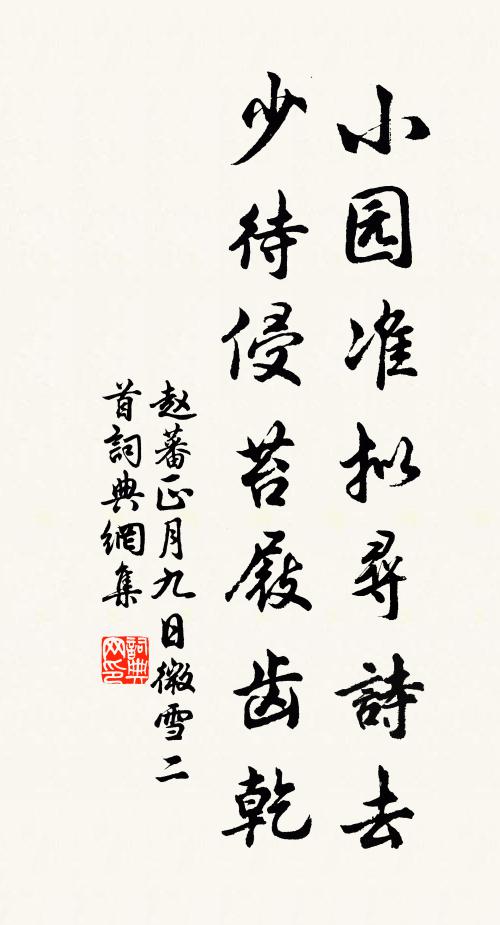 小园准拟寻詩去
少待侵苔屐齿乾
赵蕃正月九日微雪二
首詞典網集
詞典网印